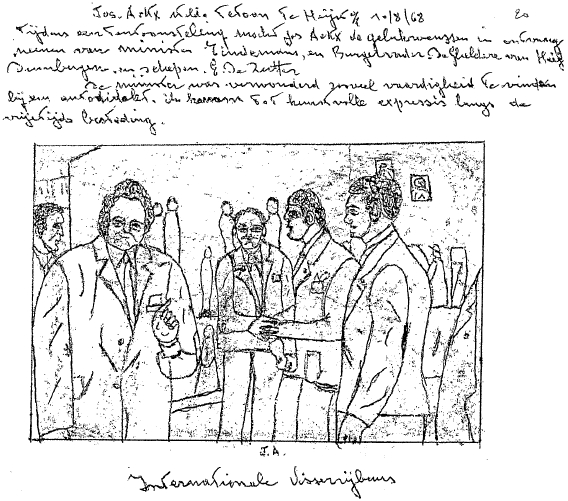 Jos. Ackx tent. toon te Heist op 10/8/68 20
Tijdens een tentoonstelling mocht Jos Ackx de gelukwensen in ontvangst
nemen van minister en Burgemeester De Gheldere van Heist
Duinbergen en schepen E. De Zutter
De minister was verwonderd zoveel vaardigheid te vinden
bij een autodidakt. die kwam tot kunstvolle expressie langs de
vrijetijds besteding.
J.A.
Internationale Visserijbeurs